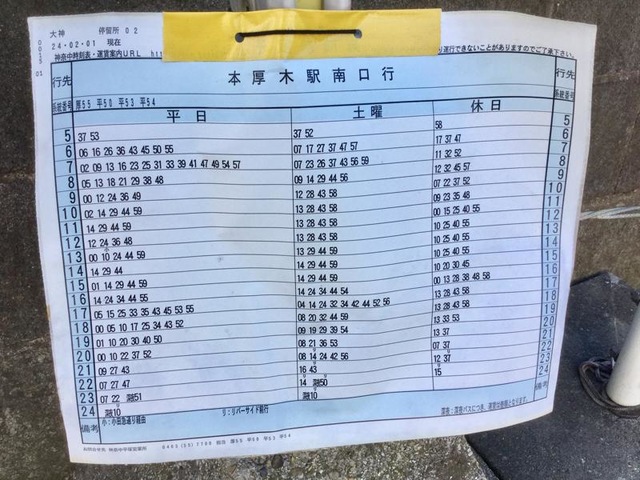 大神 停留所 02
24・02・01 現在
神奈中時刻表・運賃案内URL
り運行できないことがありますのでご了承下さい。
0015 01
行先 本厚木駅南口行 行先
系統番号 厚55 平50 平53 平54 系統番号
平日 土曜 休日
5 37 53 37 52 58 5
6 06 16 26 36 43 45 50 55 07 17 27 37 47 57 17 37 47 6
7 02 09 13 16 23 25 31 33 39 41 47 49 54 57 07 23 26 37 43 56 59 11 32 52 7
8 05 13 18 21 29 38 48 09 14 29 44 56 12 32 45 57 8
9 00 12 24 36 49 12 28 43 58 07 22 37 52 9
10 02 14 29 44 59 13 28 43 58 09 23 35 48 10
11 14 29 44 59 13 28 43 58 00 15 25 40 55 11
12 12 24 36 48 13 28 43 58 10 25 40 55 12
13 00 10 24 44 59 13 28 43 58 10 25 40 55 13
14 14 29 44 14 29 44 59 10 25 40 55 14
15 01 14 29 44 59 14 29 44 59 10 20 30 45 15
16 14 24 34 44 55 14 24 34 44 54 00 13 28 38 48 58 16
17 05 15 25 33 35 43 45 53 55 04 14 24 32 34 42 44 52 56 13 28 43 58 17
18 00 05 10 17 25 34 43 52 08 20 32 44 59 13 28 43 58 18
19 01 10 20 30 40 50 09 19 29 39 54 13 33 53 19
20 00 10 22 37 52 08 21 36 53 13 37 20
21 09 27 43 08 14 24 42 56 07 37 21
22 07 27 47 16 43 12 37 22
23 07 22 深51 14 深50 15 23
24 深10 深10 24
備考 小：小田急通り経由 リ：リバーサイド前行 深夜：深夜バスにつき、運賃は倍額となります。 備考
お問合せ先 神奈中平塚営業所